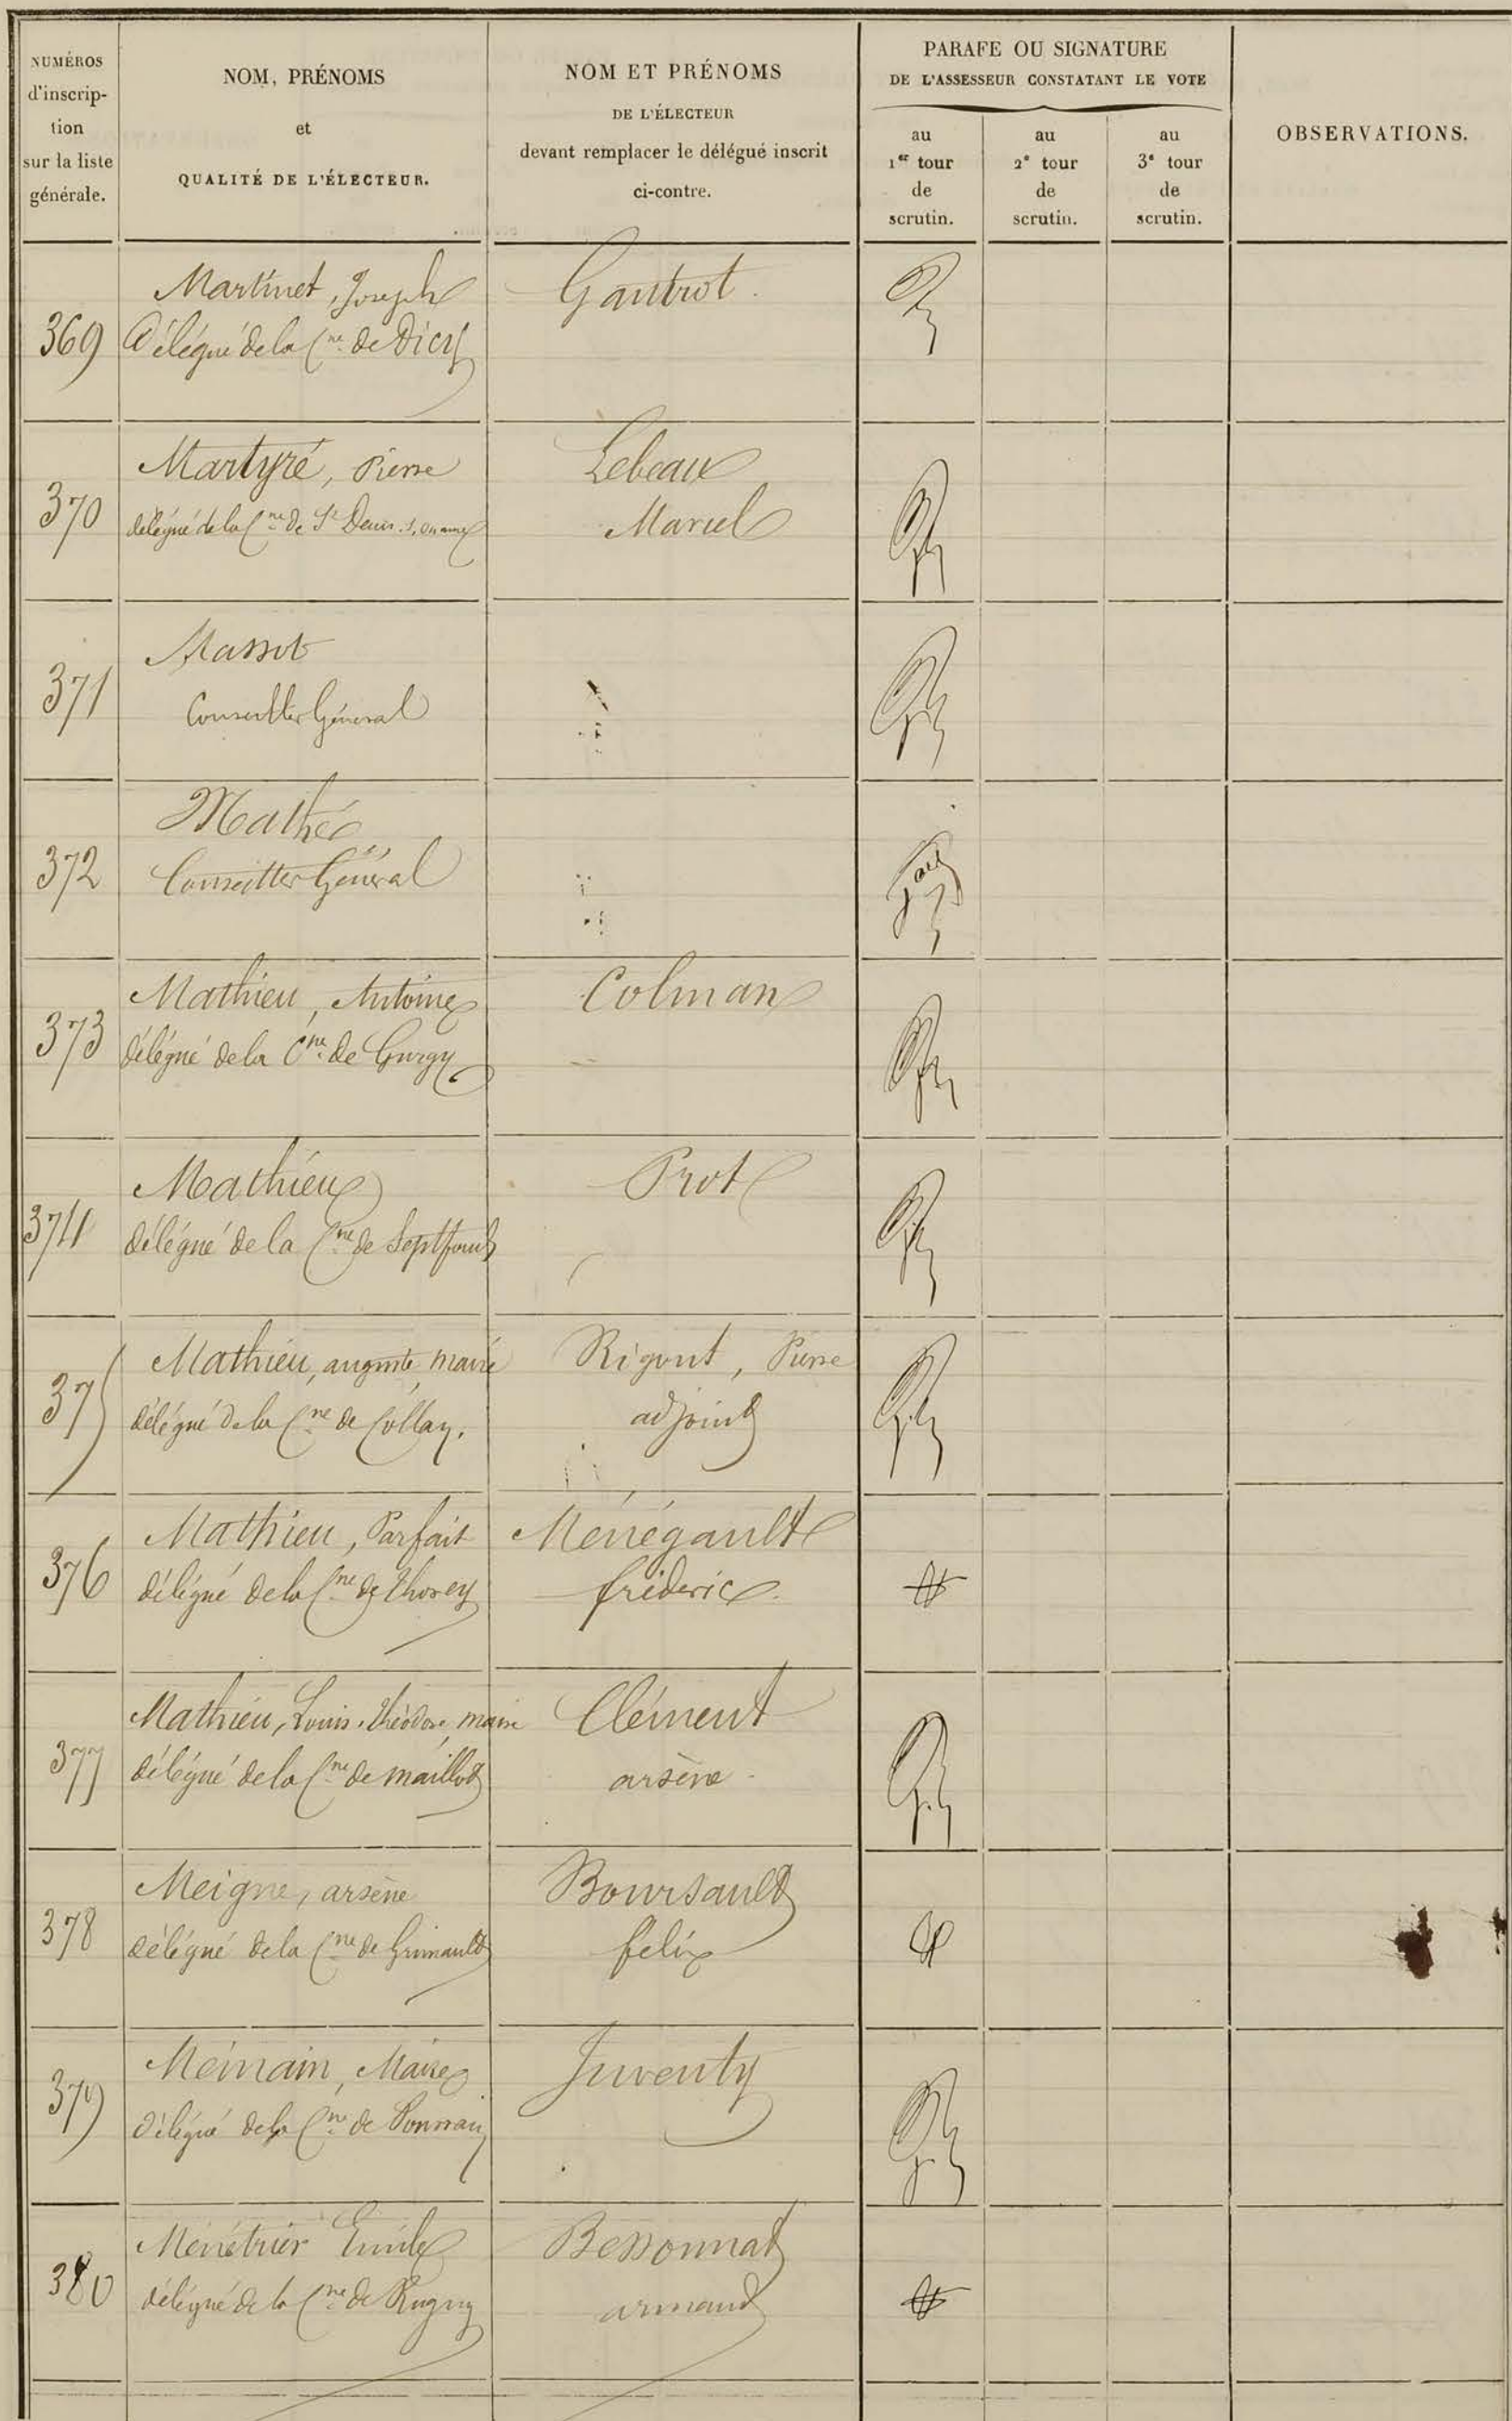 NUMÉROS
d'inscrip-
tion
sur la liste
générale.
NOM, PRÉNOMS
et
QUALITÉ DE L'ÉLECTEUR.
NOM ET PRÉNOMS
DE L'ÉLECTEUR
devant remplacer le délégué inscrit
ci-contre.
PARAFE OU SIGNATURE
DE L'ASSESSEUR CONSTATANT LE VOTE
au
1er tour
de
scrutin.
au
2e tour
de
scrutin.
au
3e tour
de
scrutin.
OBSERVATIONS.
369
Martinet, Joseph
Délégué de la Cne de Dicy
Gautrot.
370
Martyré, Pierre
délégué de la Cne de St Denis s. ouanne
Lebeau
Marcel
371
Massot
Conseiller Général
372
Mathé
Conseiller Général
373
Mathieu, Antoine
délégué de la Cne de Gurgy
Colman
374
Mathieu
délégué de la Cne de Septfonds
Prot
375
Mathieu, auguste, maire
délégué de la Cne de Collan.
Rigout, Pierre
adjoint
376
Mathieu, Parfait
délégué de la Cne de Thorey
Ménégault
fréderic.
377
Mathieu, Louis, théodore, maire
délégué de la Cne de maillot
Clément
arsène
378
Meigne, arsène
délégué de la Cne de Grimault
Boursault
felix
379
Mémain, Maire
délégué de la Cne de Pourrain
Juventy
380
Ménétrier Emile
délégué de la Cne de Rugny
Bessonnat
armand